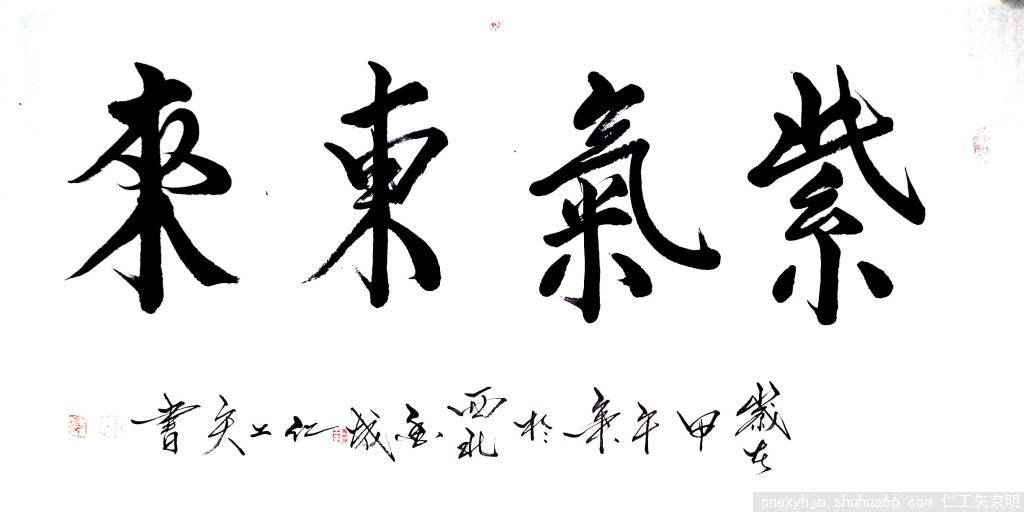 紫氣東來
歲在甲午年於西北金城仁工矢書
cnexyhjm.shuhua66.com 仁工矢京明